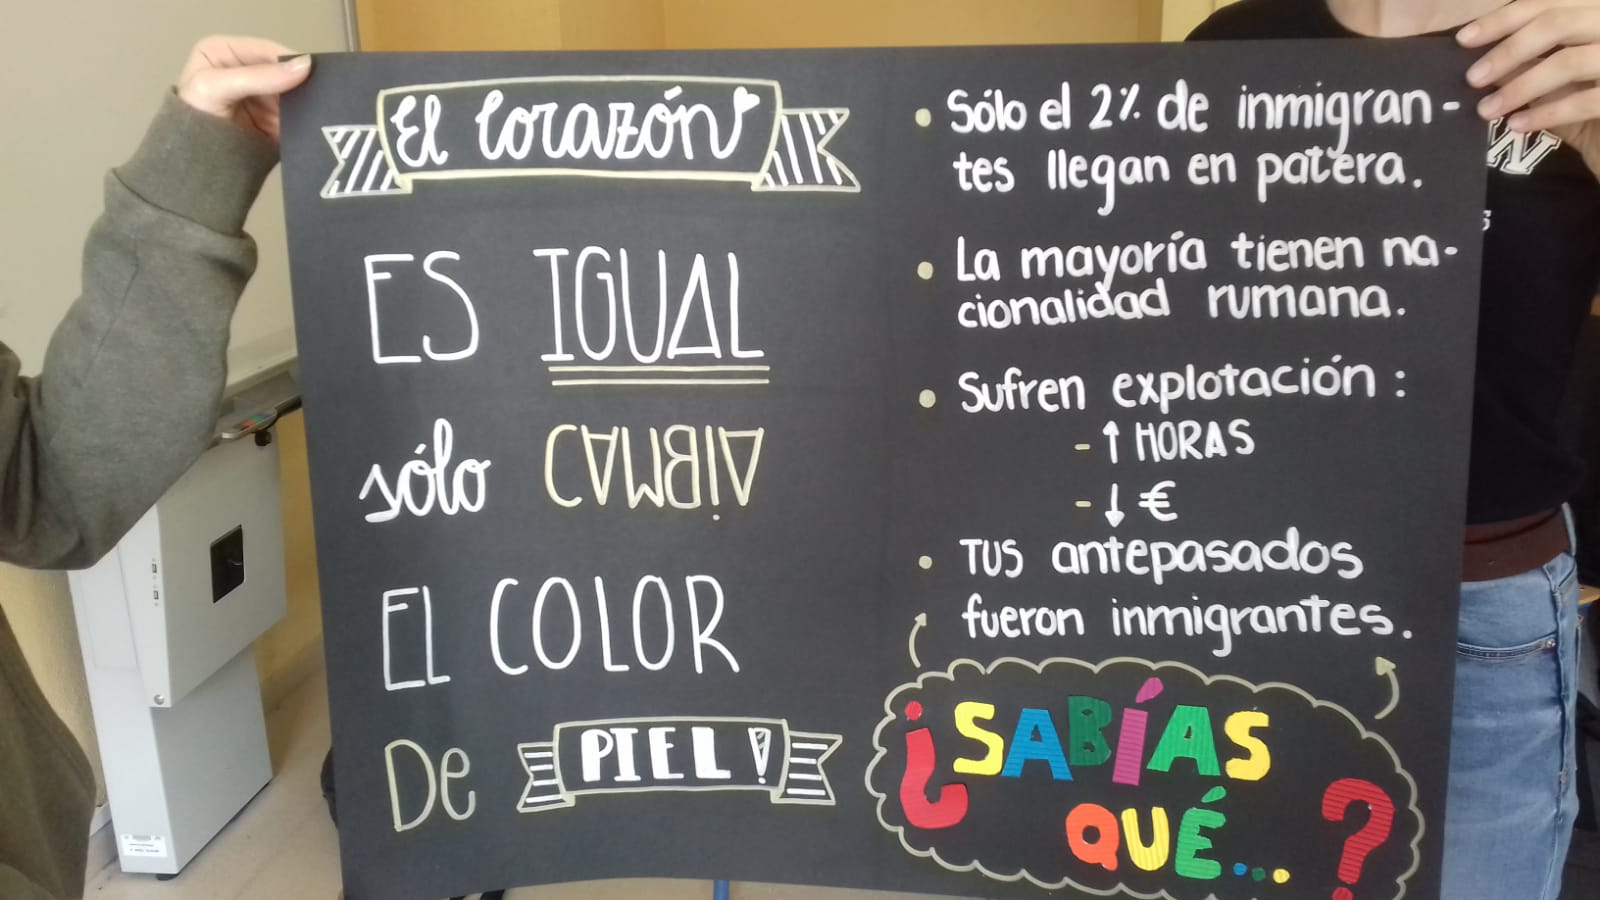 El Corazón
ES IGUAL
sólo CAMBIA
EL COLOR
De PIEL!
• Sólo el 2% de inmigran-
tes llegan en patera.
• La mayoría tienen na-
cionalidad rumana.
• Sufren explotación:
- ↑ HORAS
- ↓ €
• TUS antepasados
fueron inmigrantes.
¿SABÍAS
QUÉ...?
W